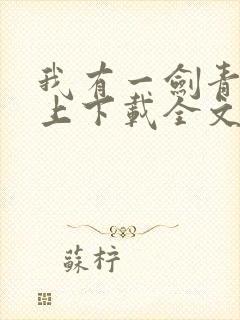 我有一劍青
上下載全文
蘇柠